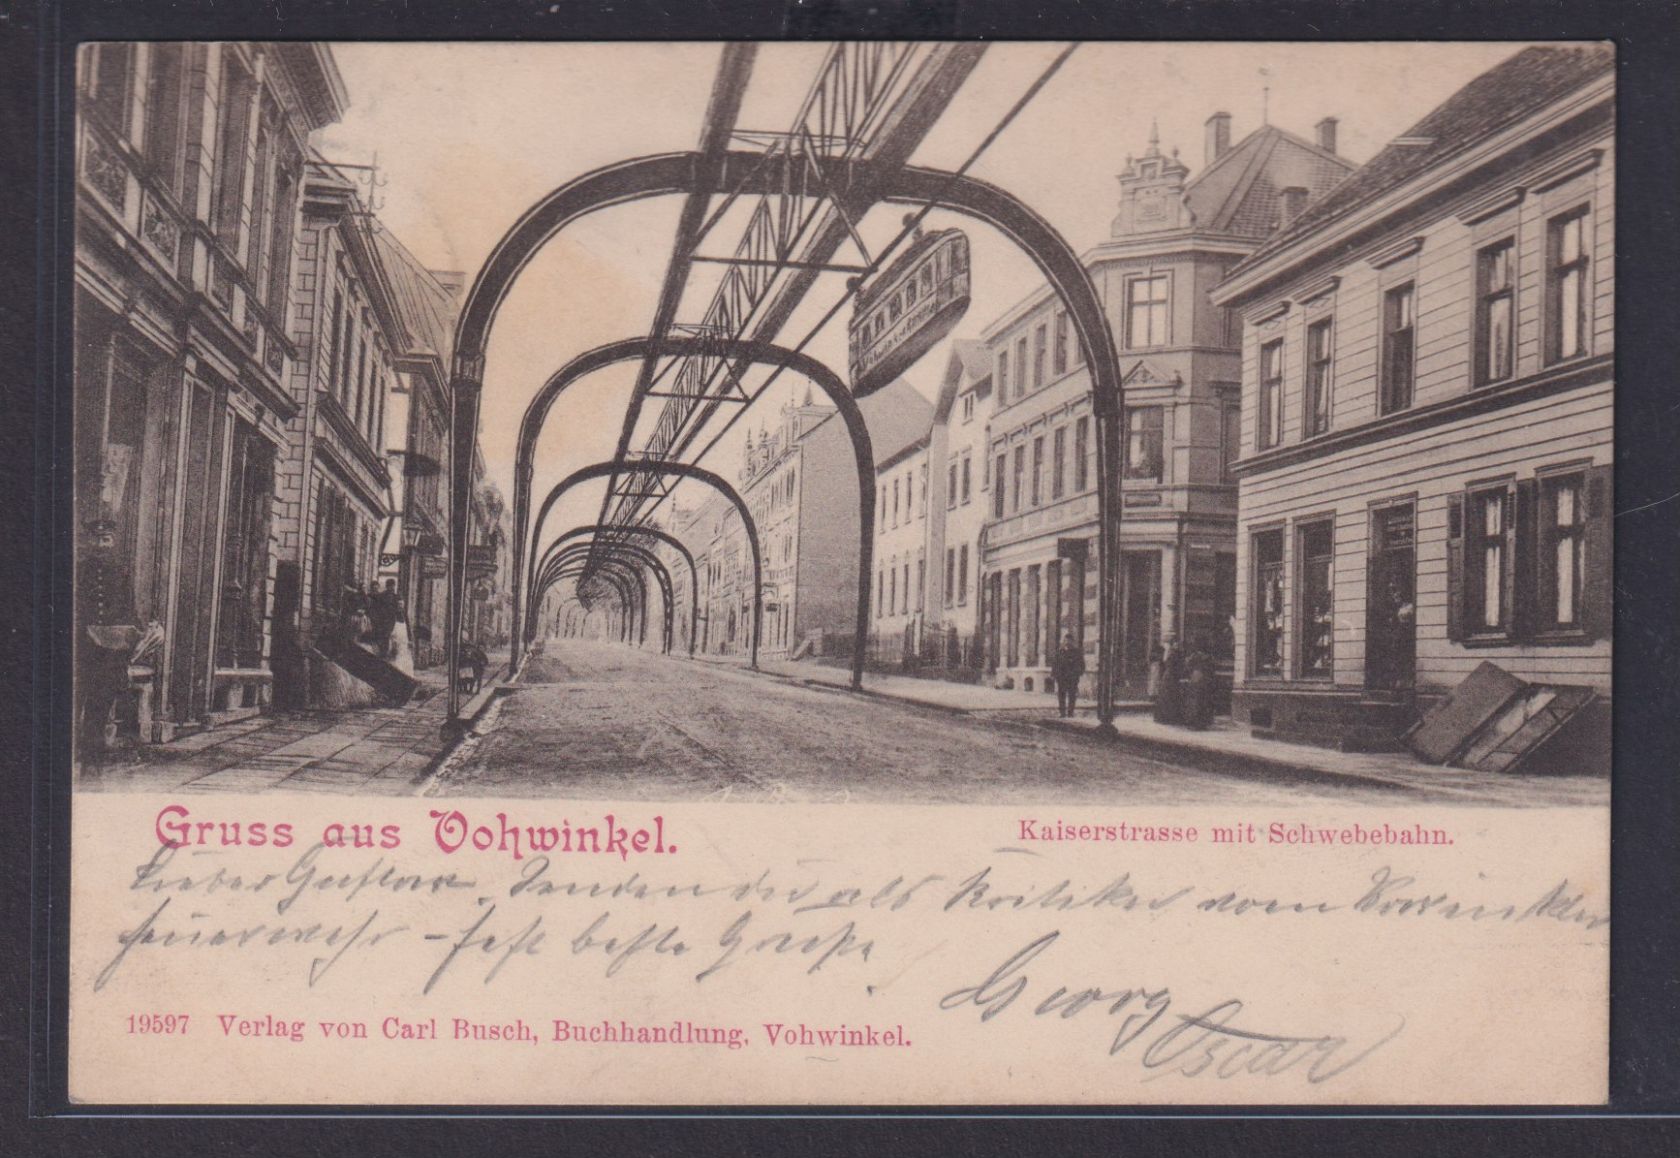 Gruss aus Vohwinkel.
Kaiserstrasse mit Schwebebahn.
Lieber Gustav. Senden dir als Kritiker vom
Feuerwehr-fest beste Grüße.
Georg
Oscar
19597 Verlag von Carl Busch, Buchhandlung, Vohwinkel.